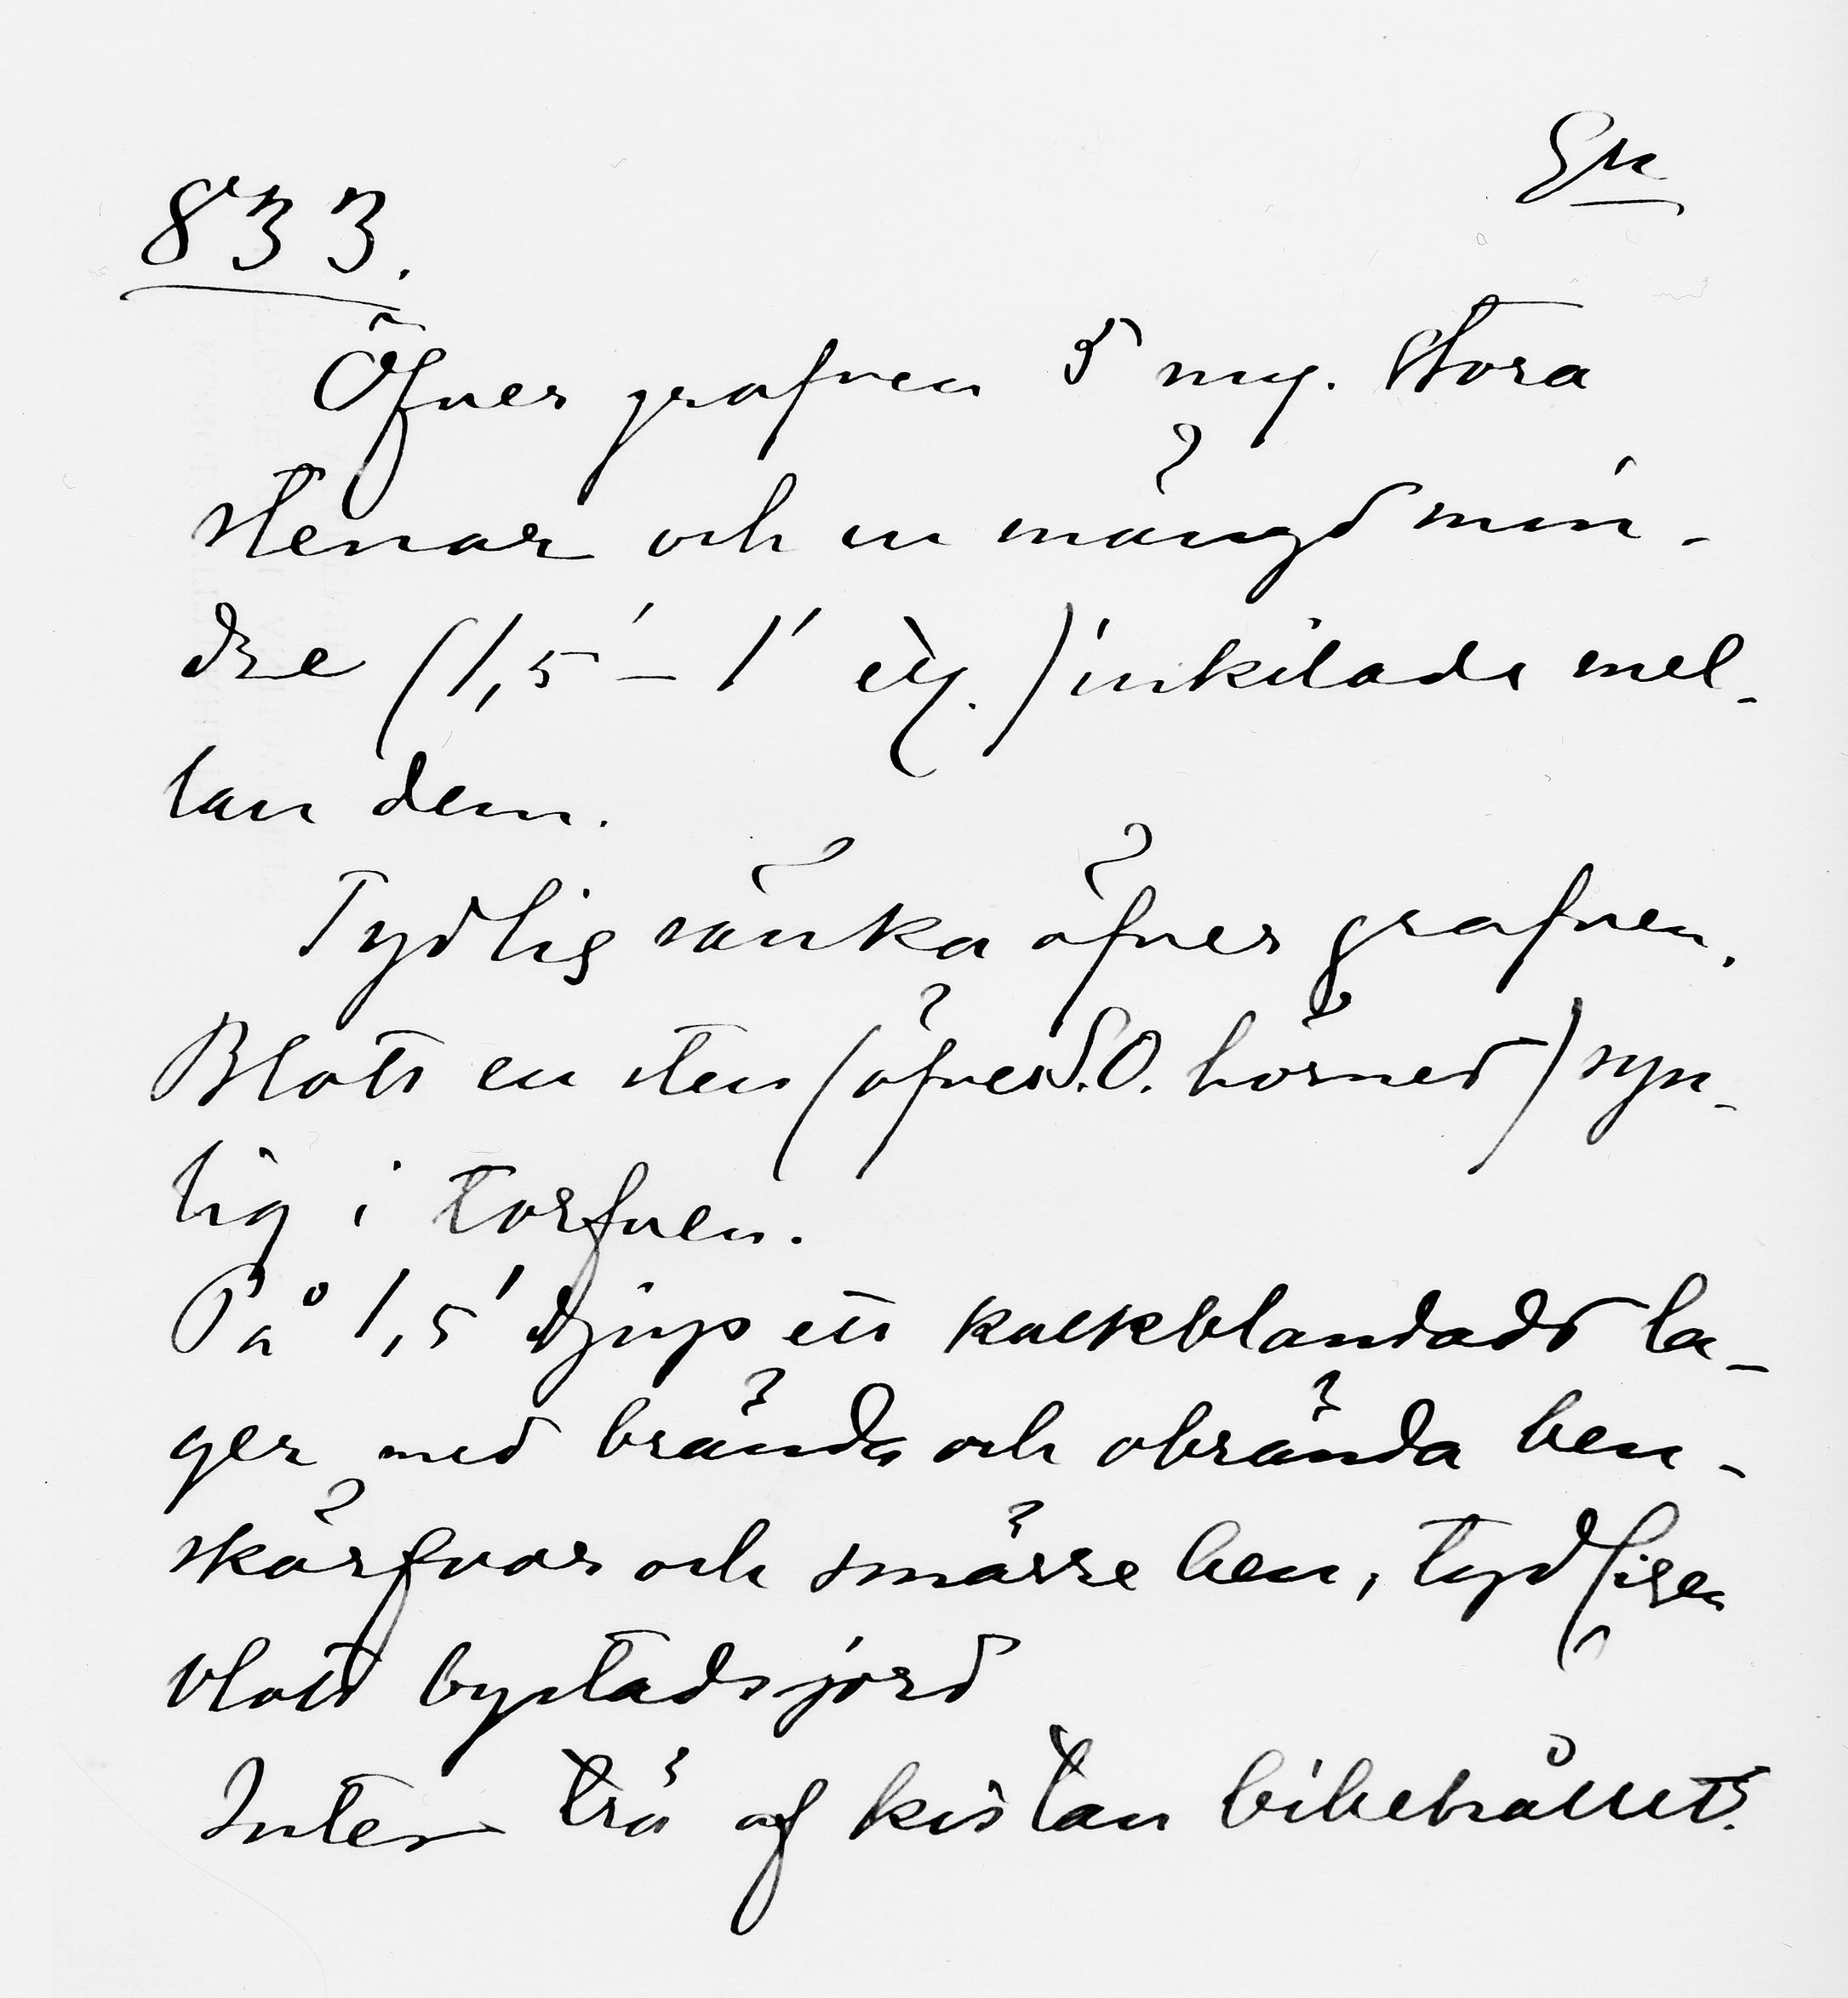 Gn
833.
Öfver grafven 5 myc. stora
stenar och en mängd min-
dre (1,5'–1' etc.) inkilade mel-
lan dem.
Tydlig sänka öfver grafven.
Blott en sten (öfver S.O. hörnet) syn-
lig i torfven.
På 1,5' djup ett kolblandadt la-
ger med brända och obrända ben-
skärfvor och smärre ben, tydligen
blott bystadsjord
Intet trä af kistan bibehållet.